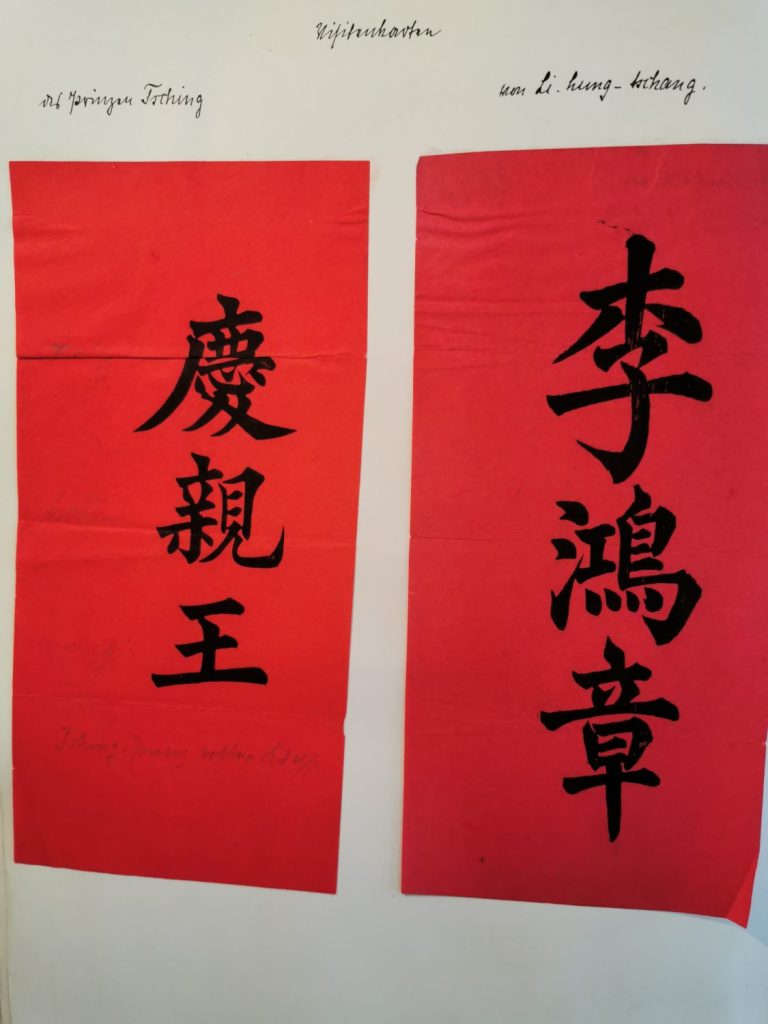 Visitenkarten
des Prinzen Tsching
von Li-hung-tschang.
慶親王
李鴻章
Tsching, Prinz